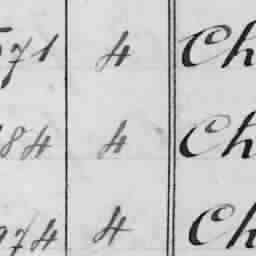 571 4 Ch
84 4 Ch
974 4 Ch